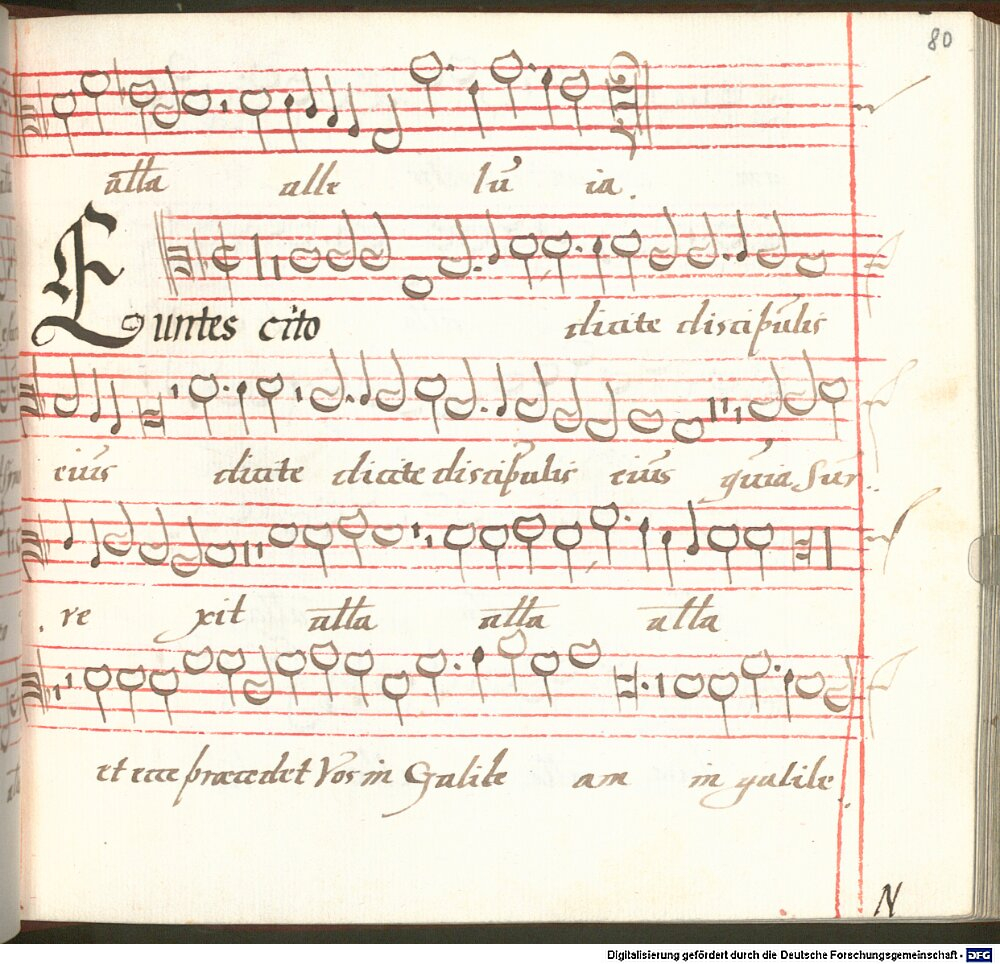 80
alla alle lu ia.
Euntes cito dicite discipulis
eius dicite dicite discipulis eius quia Sur
re xit alla alla alla
et ecce præcedet Vos in Galile am in galile
N
Digitalisierung gefördert durch die Deutsche Forschungsgemeinschaft - DFG